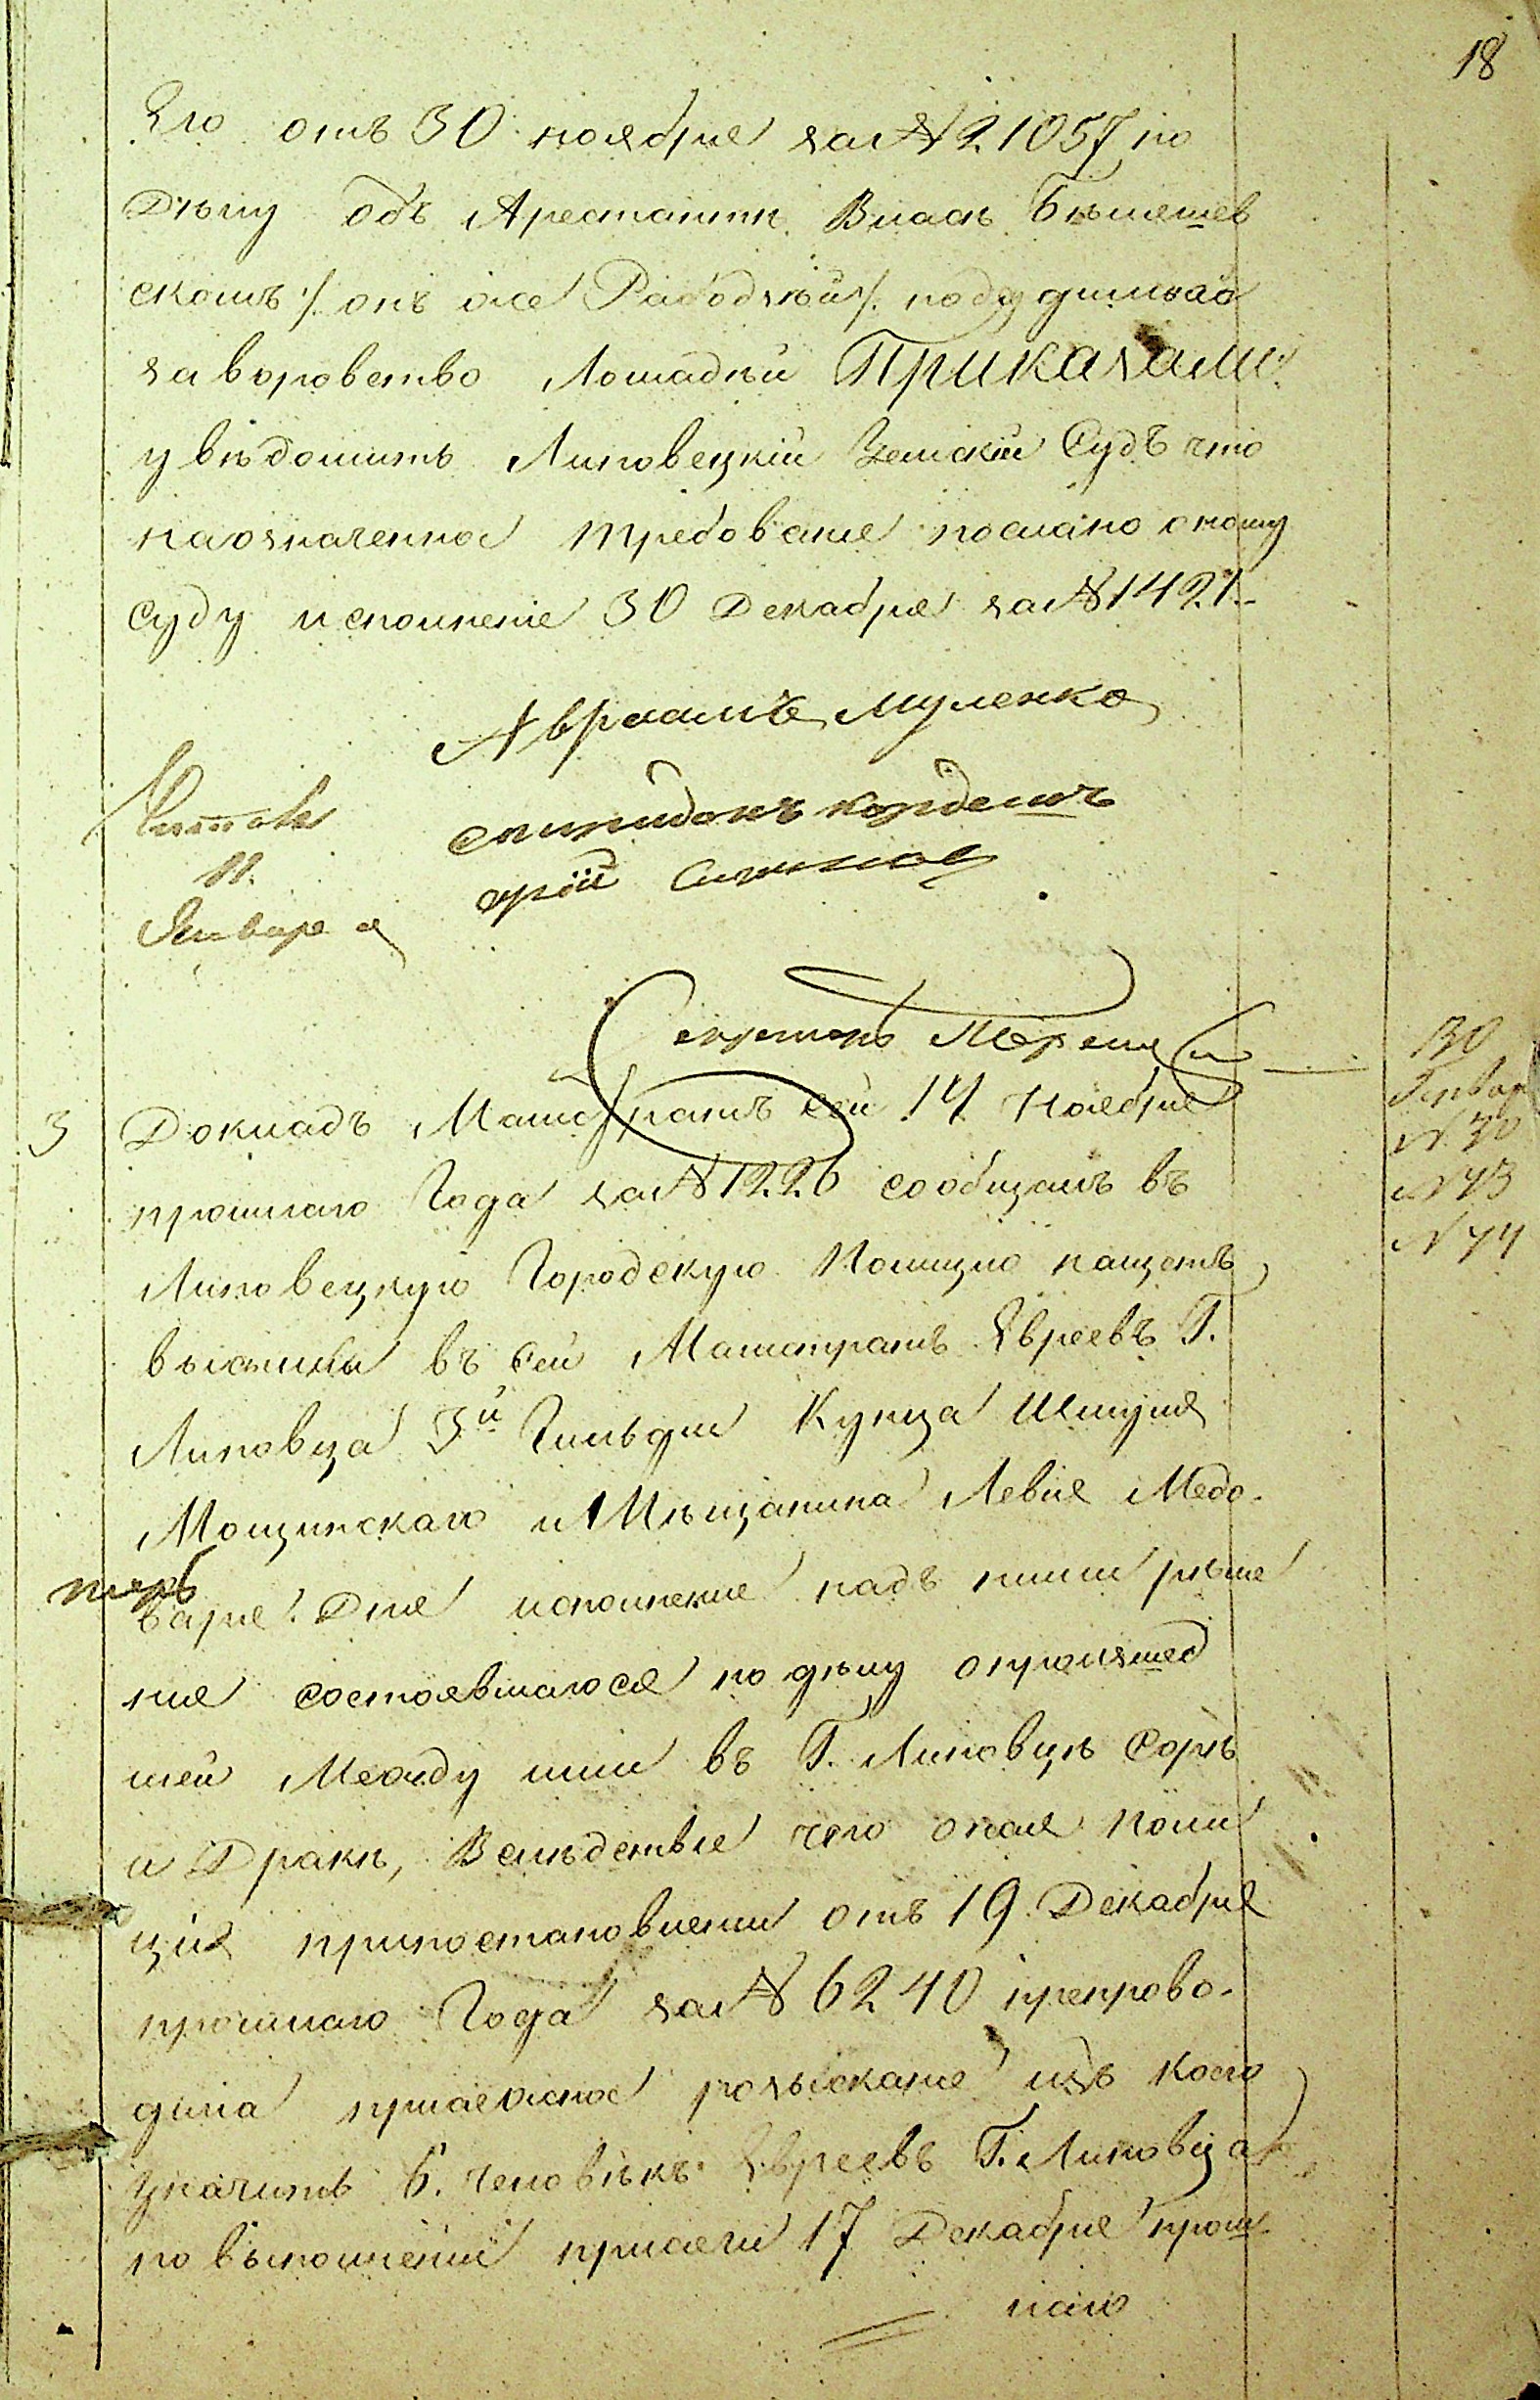 18
Его отъ 30 ноября за № 21057 по
Дѣлу объ Арестантѣ Власѣ
скомъ ./. онъ же ./. подсудимаго
за воровство Лошадѣй Приказали:
увѣдомить Липовецкій Земскій Судъ что
на означенное требованіе послано оному
суду исполненіе 30 Декабря за № 1421.
Авраамъ Муленко
спиридонъ
11.
Января
Секретарь
130
Генвар
N 30
N 43
N 44
3 Докладъ Магистратъ сей 14 Ноября
прошлаго Года за № 1226 сообщалъ въ
Липовецкую Городскую Полицію нащетъ
высылки въ сей Магистратъ Евреевъ Г.
Липовца 3й Гильдіи Купца Шмуля
Мощинскаго и Мѣщанина Левія Медо-
варя. Для исполненія надъ ними рѣше
нія состоявшагося по дѣлу о произшед
шей Между ими въ Г. Липовцѣ Сорѣ
и Дракѣ, Вслѣдствіе чего оная Поли
ція при постановленіи отъ 19 Декабря
прошлаго Года за № 6240 препрово-
дила присяжное розысканіе изъ коего
значитъ 6. человѣкъ Евреевъ Г. Липовца
по выполненіи присяги 17 Декабря прош
лаго